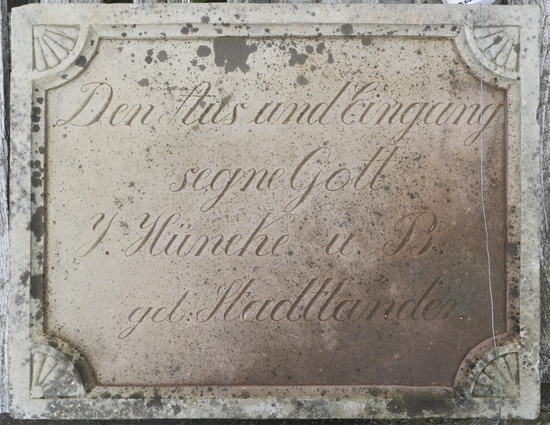 Den Aus und Eingang
segne Gott
J. Hüneke u. B.
geb. Stadtlander